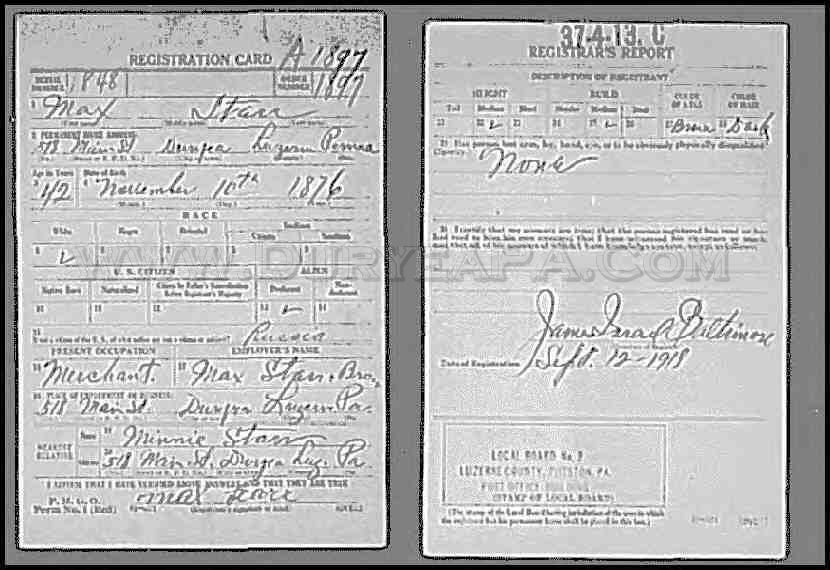 REGISTRATION CARD A 1897
SERIAL NUMBER 1848 ORDER NUMBER 1897
1 Max Starr
2 PERMANENT HOME ADDRESS:
518 Main St Duryea Luzerne Penna
Age in Years Date of Birth
3 42 4 November 10th 1876
RACE
White Negro Oriental Indian
Citizen
5 6 7 8 9
U. S. CITIZEN ALIEN
Native Born Naturalized Citizen by Father's Naturalization Before Registrant's Majority Declarant Non-declarant
10 11 12 13 14
15 Russia
PRESENT OCCUPATION EMPLOYER'S NAME
16 Merchant. 17 Max Starr & Bro
18 PLACE OF EMPLOYMENT OR BUSINESS:
518 Main St. Duryea Luzern Pa
NEAREST RELATIVE Name 19 Minnie Starr
Address 20 518 Main St. Duryea Luz. Pa.
I AFFIRM THAT I HAVE VERIFIED ABOVE ANSWERS AND THAT THEY ARE TRUE
P. M. G. O.
Form No. 1 (Red) Max Starr
37-4-13. C
REGISTRAR'S REPORT
DESCRIPTION OF REGISTRANT
HEIGHT BUILD COLOR OF EYES COLOR OF HAIR
Tall Medium Short Slender Medium Stout
21 22 23 24 25 26 27 Brown 28 Dark
29 Has person lost arm, leg, hand, eye, or is he obviously physically disqualified?
(Specify.) None
30 I certify that my answers are true; that the person registered has read or has had read to him his own answers; that I have witnessed his signature or mark, and that all of his answers of which I have knowledge are true, except as follows:
WWW.DURYEAPA.COM
Date of Registration Sept. 12-1918
LOCAL BOARD No. 3
LUZERNE COUNTY, PITTSTON, PA.
POST OFFICE BUILDING
(STAMP OF LOCAL BOARD)
(The stamp of the Local Board having jurisdiction of the area in which the registrant has his permanent home shall be placed in this box.)